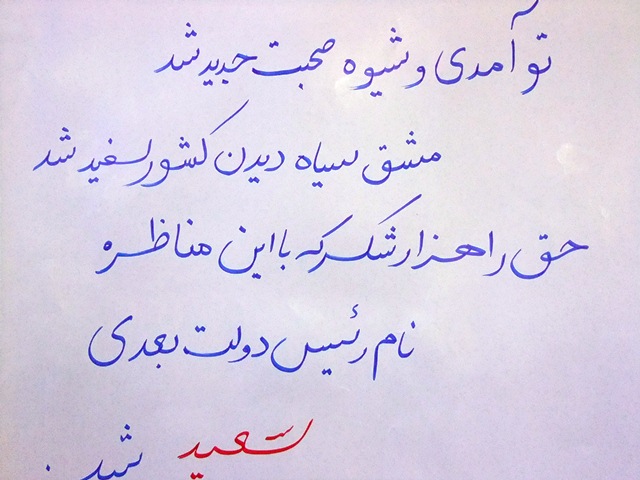 تو آمدی و شیوه صحبت جدید شد
مشق سیاه دیدن کشور سفید شد
حق را هزار شکر که با این مناظره
نام رئیس دولت بعدی
سعید شد .